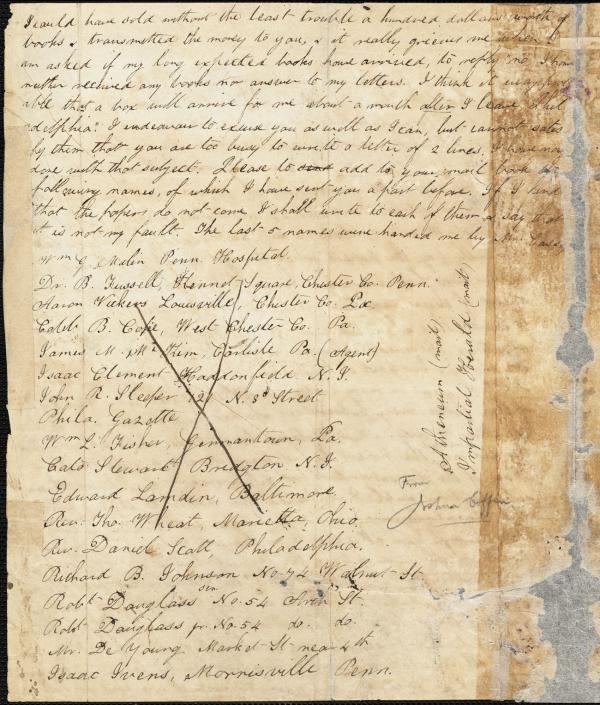 I could have sold without the least trouble a hundred dollars worth of
books & transmitted the money to you, & it really grieves me when I
am asked if my long expected books have arrived, to reply no. I have
neither received any books nor answer to my letters. I think it
able that a box will arrive for me about a month after I leave
adelphia. I endeavour to excuse you as well as I can, but cannot satis
fy them that you are too busy to write a letter of 2 lines. I have now
done with that subject. Please to add to your mail book the
following names, of which I have sent you a part before. If I find
that the papers do not come I shall write to each of them & say that
it is not my fault. The last 5 names were handed me by Mr.
Wm G. Malin Penn. Hospital.
Dr. B. Fussell, Kennet Square, Chester Co. Penn.
Aaron Vickers Louisville, Chester Co. Pa
Caleb B. Cope, West Chester Co. Pa.
James M. McKim, Carlisle Pa. (Agent)
Isaac Clement Haddonfield N.J.
John R. Sleeper 121 N. 3d Street
Phila. Gazette
Wm L. Fisher, Germantown, Pa.
Cato Stewart Bridgton N.J.
Edward Lamdin, Baltimore
Rev. Tho. Wheat, Marietta, Ohio.
Rev. Daniel Scott, Philadelphia.
Richard B. Johnson No. 74 Walnut St
Robt Douglass sen No. 54 Arch St.
Robt Douglass jr. No. 54 do. do.
Mr. De Young Market St near 4th
Isaac Ivens, Morrisville Penn.
Atheneum (mail)
Impartial Herald (mail)
From
Joshua Coffin